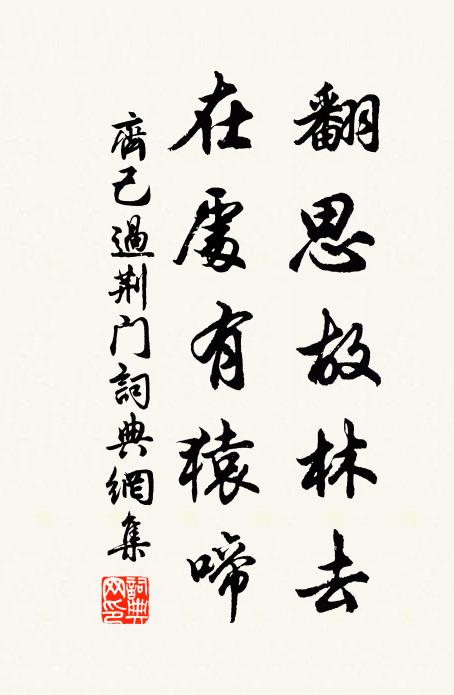 翻思故林去
在處有猿啼
齊己過荆门詞典網集
詞典网印